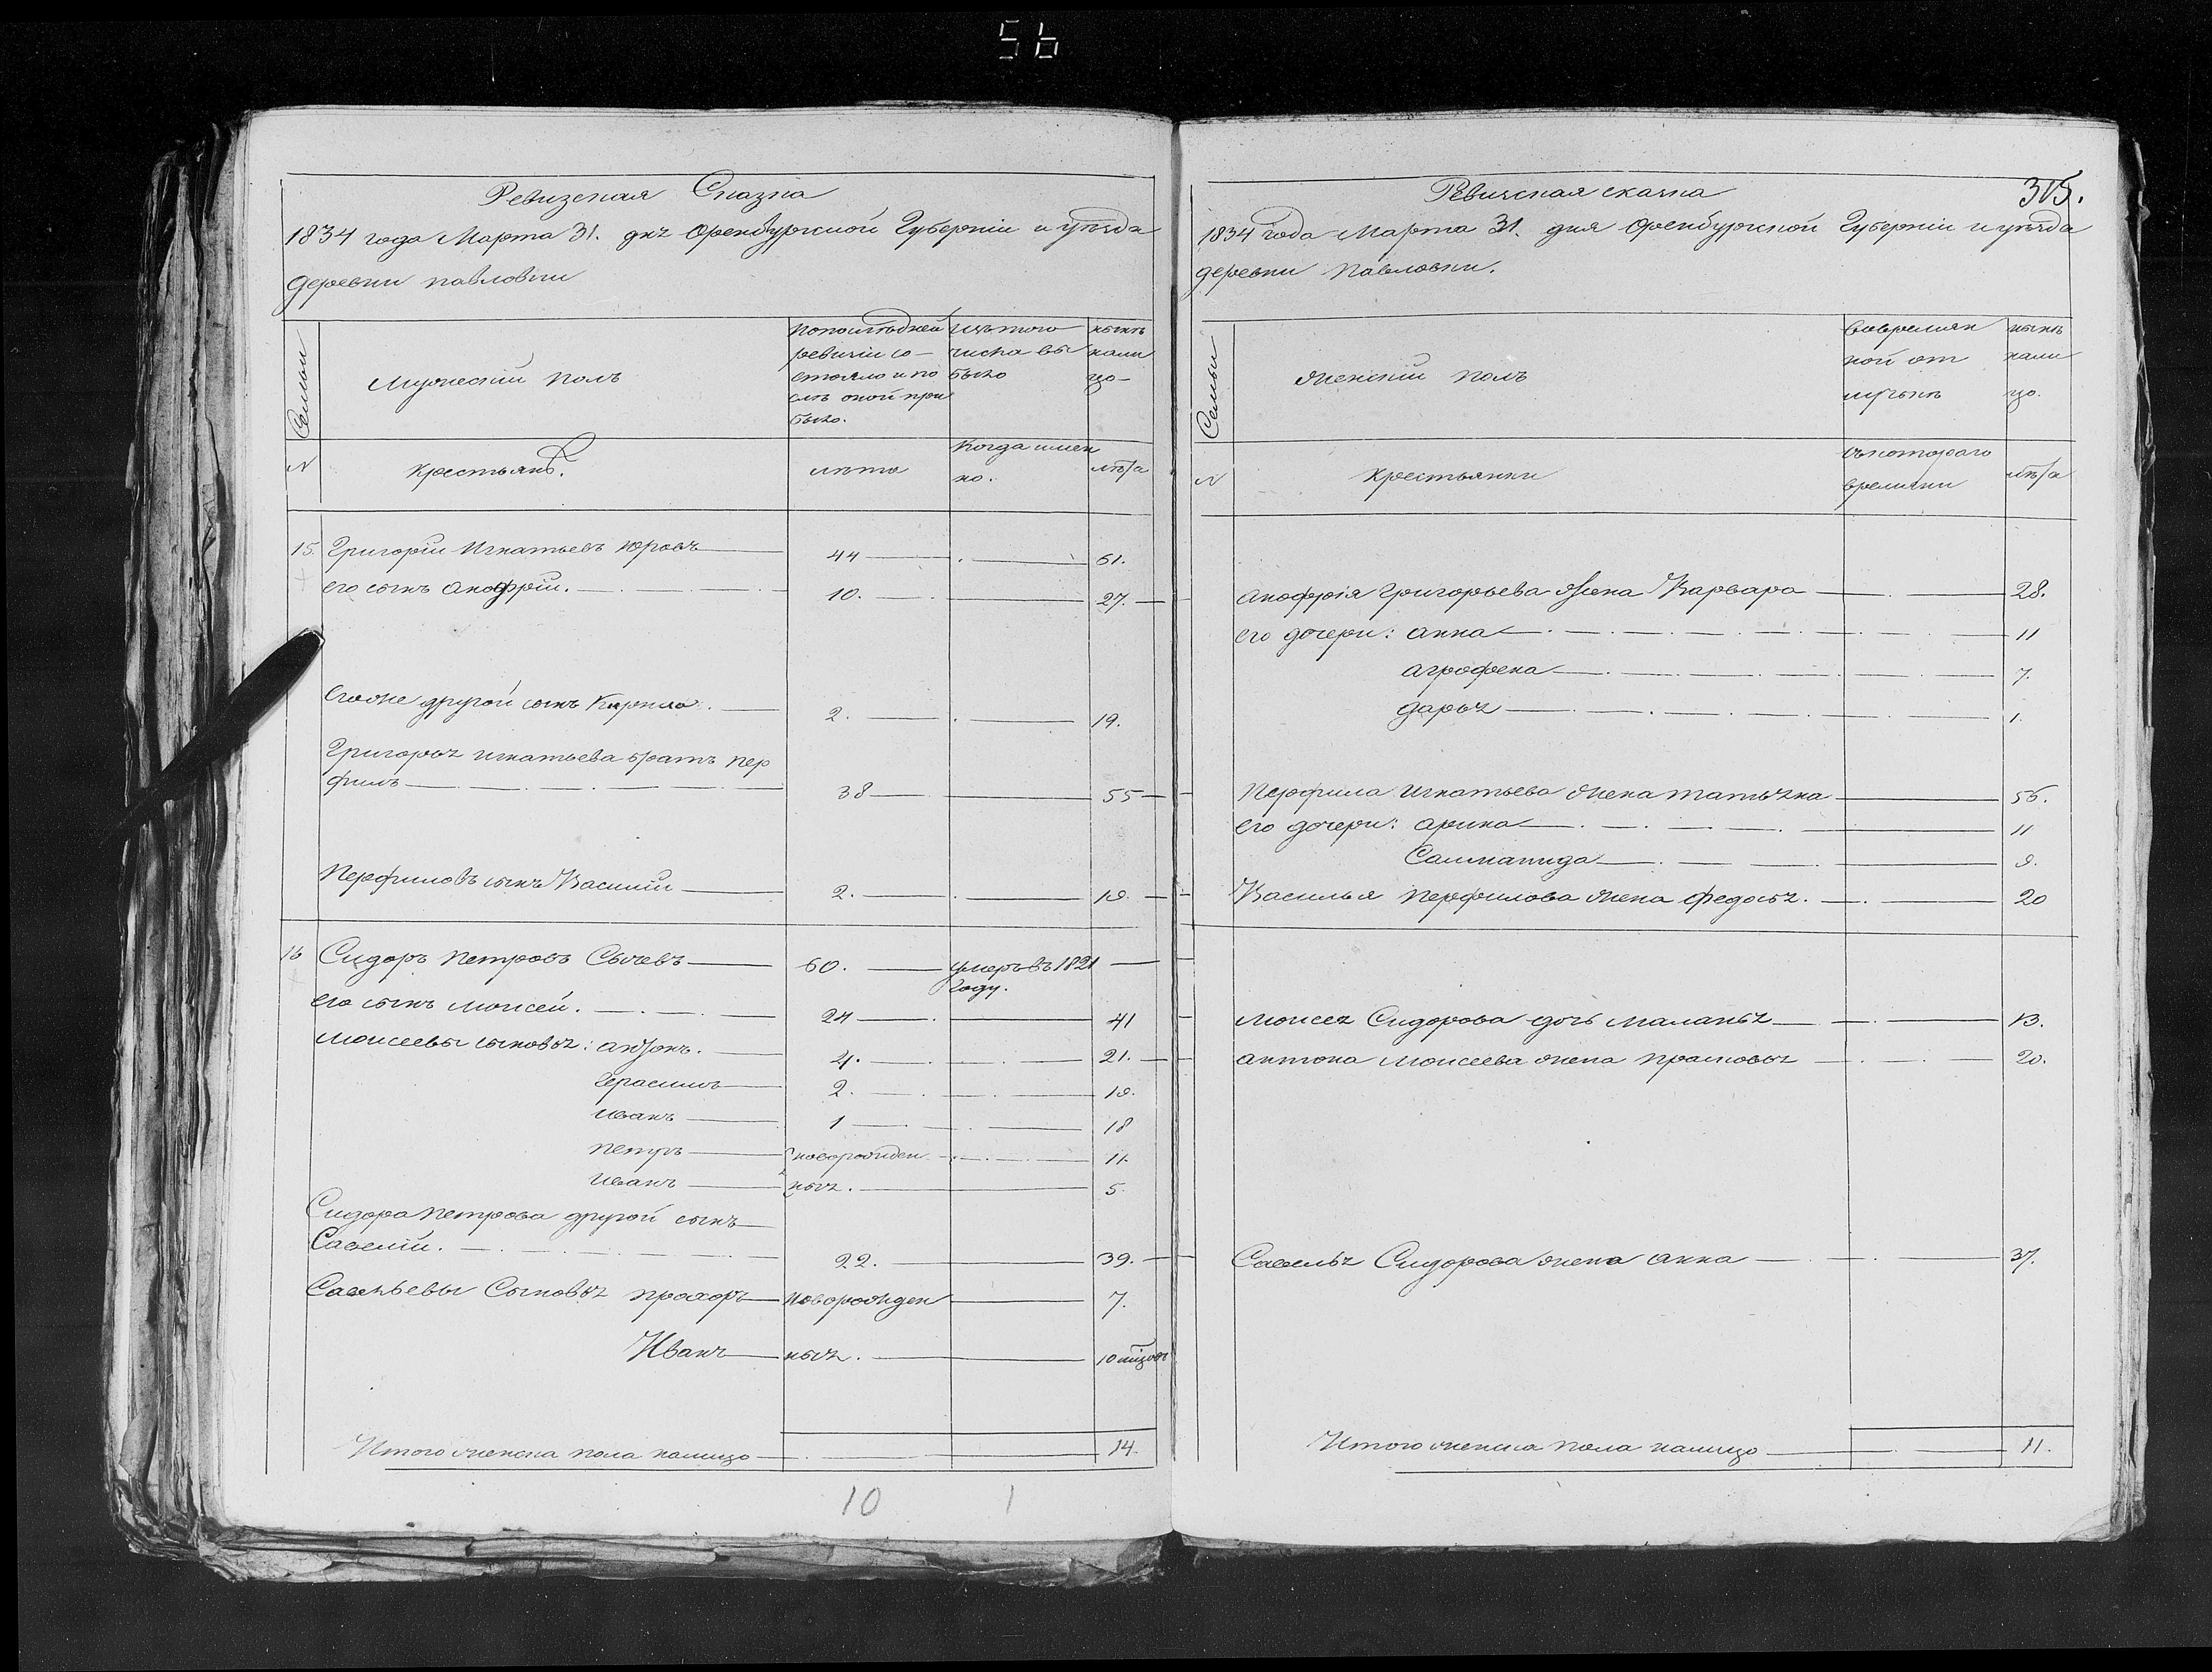 56
Ревизская Сказка
1834 года Марта 31. дня Оренбургской Губернiи и уѣзда
деревни павловки
Семьи
Мужескiй полъ
попоследней
ревизiи со-
стояло и по
слѣ оной при
было.
изъ того
числа вы
было
нынѣ
нали
цо-
N
крестьянъ.
лѣта
Когда имен
но.
лѣта
15. Григорiй Игнатьевъ Юровъ 44 61.
его сынъ Анофрiй. 10. 27.
Егоже другой сынъ Кирило. 2. 19.
Григорья игнатьева братъ пер
филъ 38 55
Перфиловъ сынъ Василiй 2. 19.
16 Сидоръ петровъ Сычевъ 60. умеръ въ 1821
году.
его сынъ моисей. 24 41
моисеевы сыновья: антонъ. 4. 21.
герасимъ 2. 19.
иванъ 1 18
петръ новорожден 11.
иванъ ныя. 5.
Сидора петрова другой сынъ
Савелiй. 22. 39.
Савельевы Сыновья прохоръ новорожден 7.
Иванъ ныя. 10 мцовъ
Итого женска пола налицо 14.
10 1
315.
Ревизская сказка
1834 года Марта 31. дня Оренбургской Губернiи и уѣзда
деревни павловки.
Семьи
женскiй полъ
вовремян
ной от
лучкѣ
нынѣ
нали
цо.
N
крестьянки
съкотораго
времяни
лѣта
анофрiя григорьева жена Варвара 28.
его дочери: анна 11
агрофена 7.
дарья 1.
Перфила игнатьева жена татьяна 56.
его дочери: арина 11
Саламанида 9.
Василья перфилова жена федосья. 20
моисея Сидорова дочь маланья 13.
антона моисеева жена прасковья 20.
Савелья Сидорова жена анна 37.
Итого женска пола налицо 11.